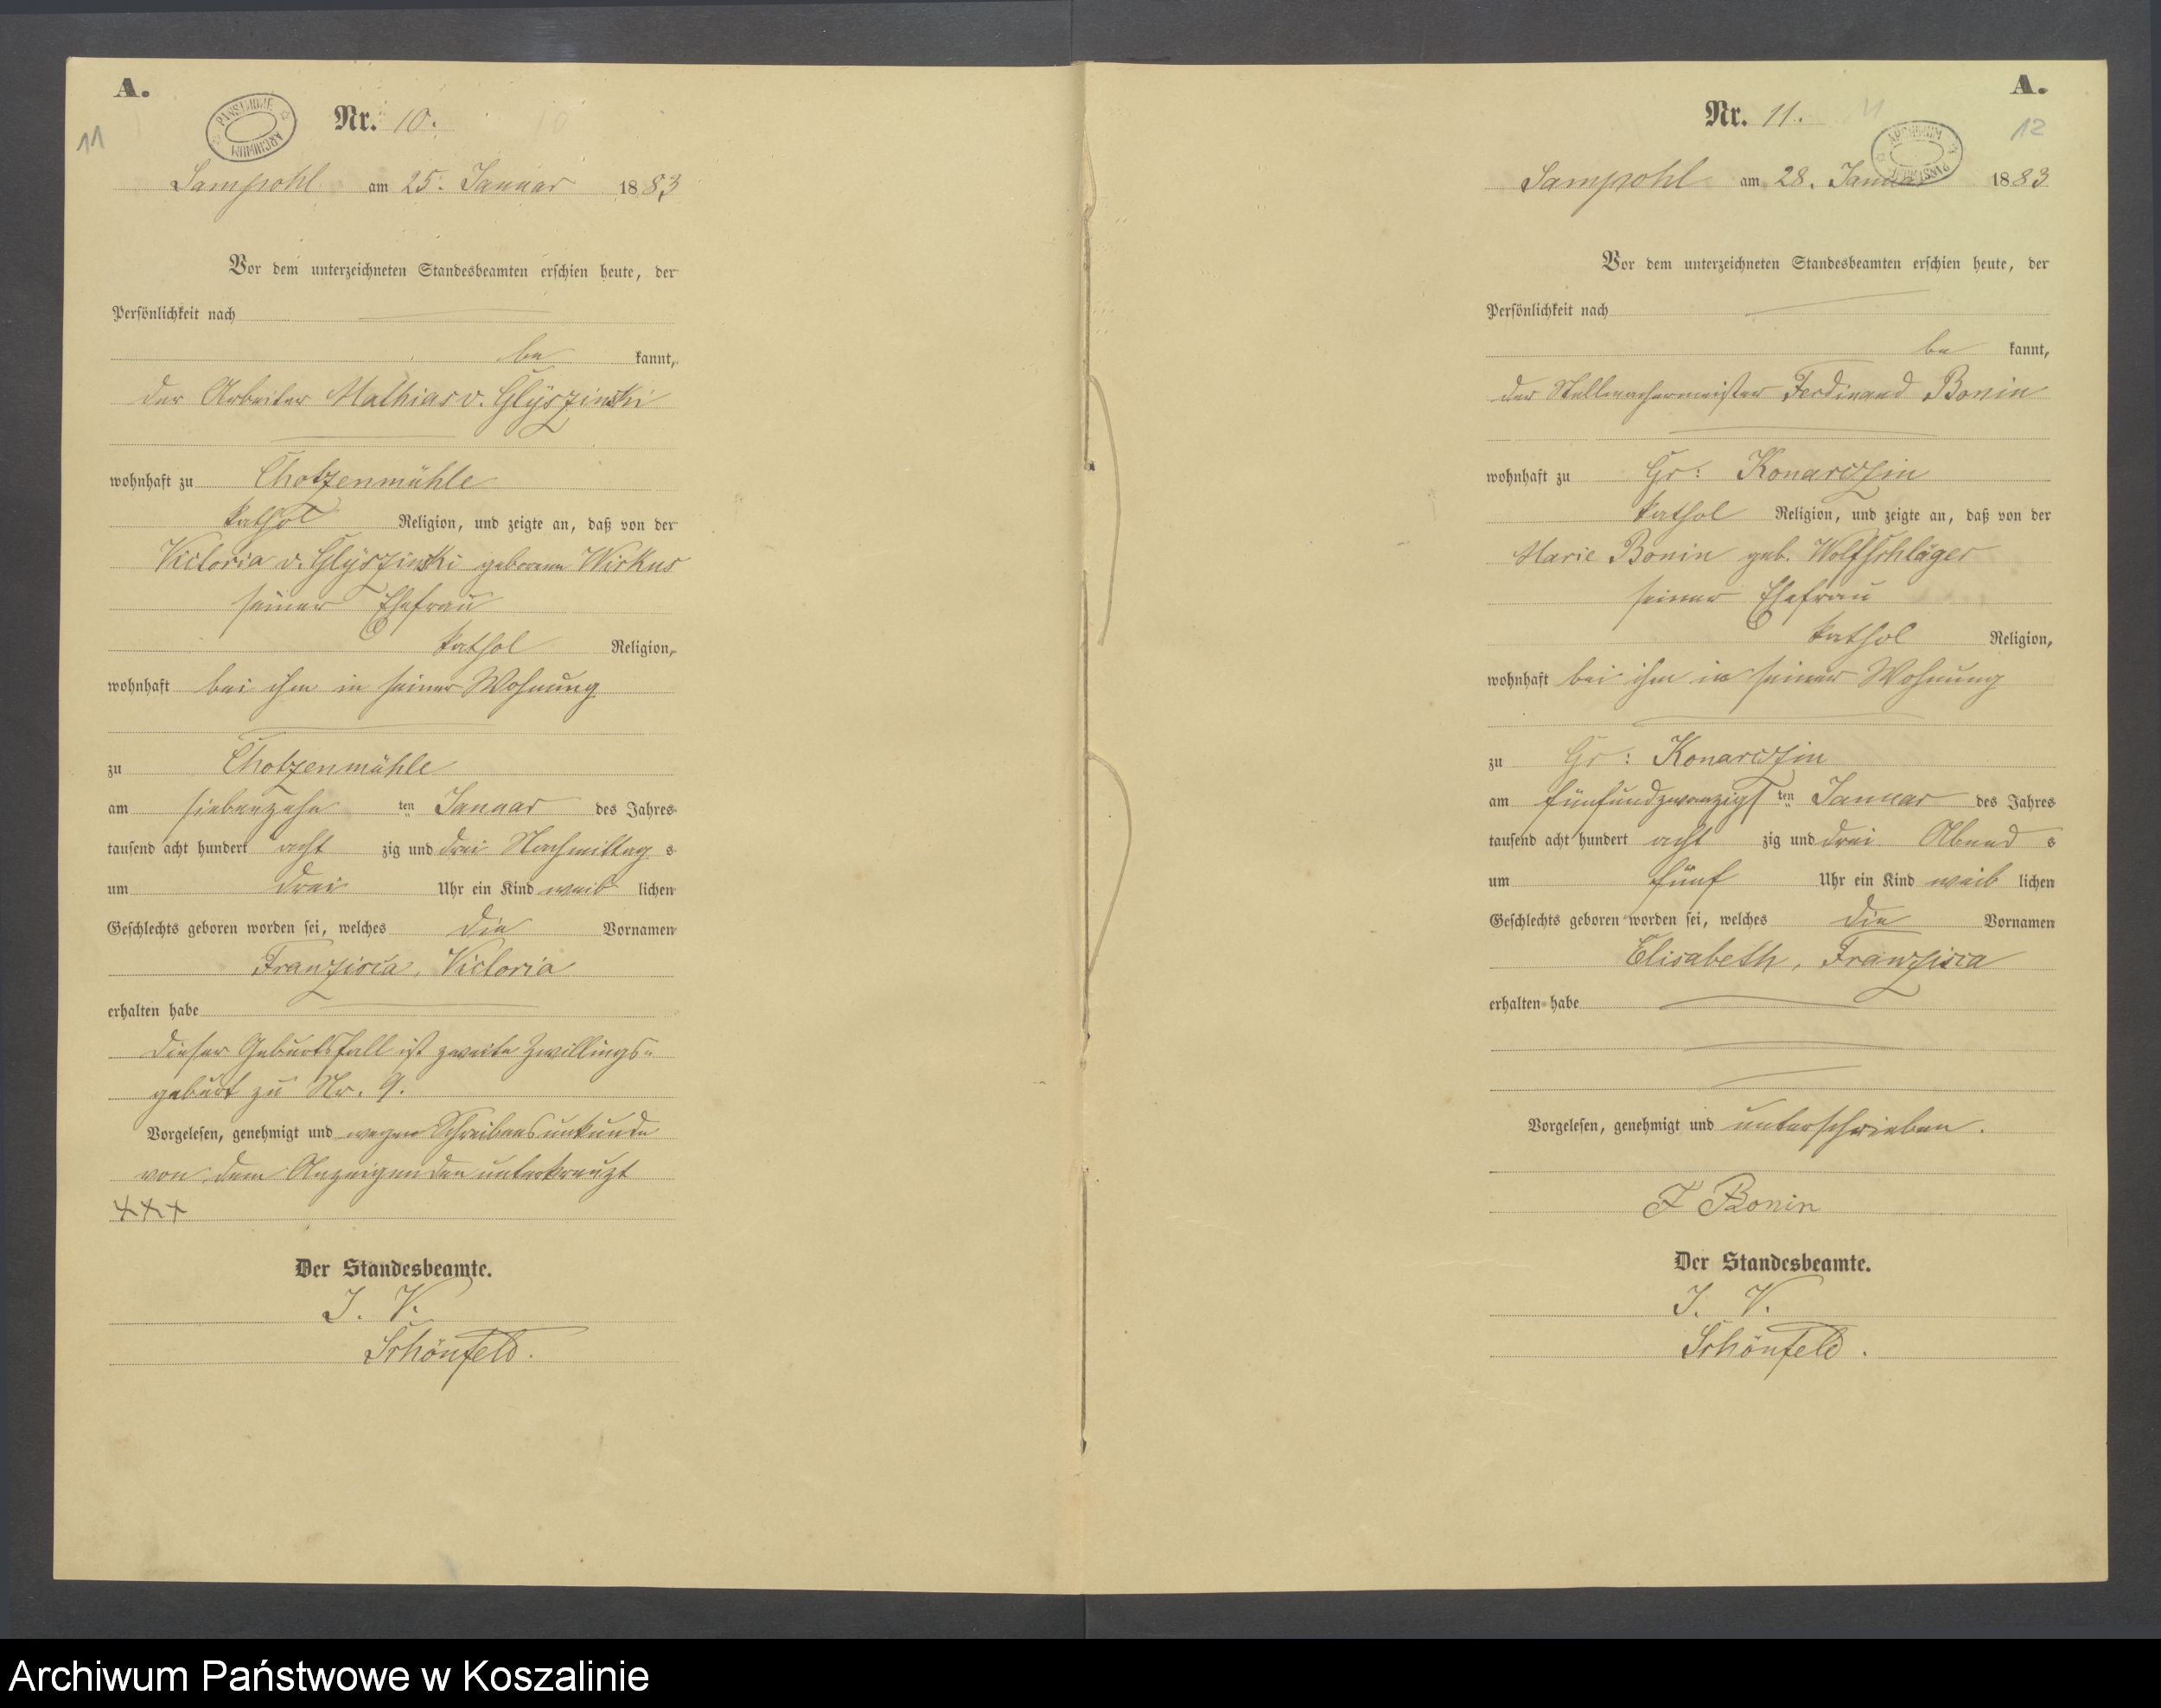 A.
11
PAŃSTWOWE ARCHIWUM
Nr. 10.
10
Sampohl am 25. Januar 1883
Vor dem unterzeichneten Standesbeamten erschien heute, der
Persönlichkeit nach
be kannt,
der Arbeiter Mathias v. Glyszinski
wohnhaft zu Chotzenmühle
kathol Religion, und zeigte an, daß von der
Victoria v. Glyszinski geborene Wirkus
seiner Ehefrau
kathol Religion,
wohnhaft bei ihm in seiner Wohnung
zu Chotzenmühle
am siebenzehn ten Januar des Jahres
tausend acht hundert acht zig und drei Nachmittag s
um drei Uhr ein Kind weib lichen
Geschlechts geboren worden sei, welches die Vornamen
Franzisca, Victoria
erhalten habe
Dieser Geburtsfall ist zweite Zwillings-
geburt zu Nr. 9.
Vorgelesen, genehmigt und wegen Schreibensunkunde
von dem Anzeigenden unterkreuzt
+++
Der Standesbeamte.
I. V.
Schönfeld.
A.
12
Nr. 11.
11
ARCHIWUM PAŃSTWOWE
Sampohl am 28. Januar 1883
Vor dem unterzeichneten Standesbeamten erschien heute, der
Persönlichkeit nach
be kannt,
der Stellmachermeister Ferdinand Bonin
wohnhaft zu Gr: Konarczin
kathol Religion, und zeigte an, daß von der
Marie Bonin geb. Wolfschläger
seiner Ehefrau
kathol Religion,
wohnhaft bei ihm in seiner Wohnung
zu Gr: Konarczin
am fünfundzwanzigs ten Januar des Jahres
tausend acht hundert acht zig und drei Abend s
um fünf Uhr ein Kind weib lichen
Geschlechts geboren worden sei, welches die Vornamen
Elisabeth, Franzisca
erhalten habe
Vorgelesen, genehmigt und unterschrieben.
F Bonin
Der Standesbeamte.
I. V.
Schönfeld.
Archiwum Państwowe w Koszalinie